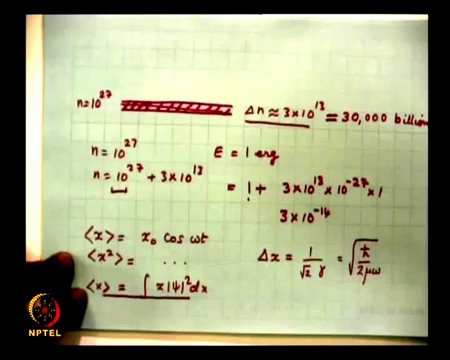 n=10²⁷ Δn ≈ 3×10¹³ = 30,000 billion
n = 10²⁷ E = 1 erg
n = 10²⁷ + 3×10¹³ = 1 + 3×10¹³ × 10⁻²⁷ × 1
3×10⁻¹⁴
<x> = x₀ cos ωt
<x²> = ... Δx = 1/√2 γ = √ħ/2μω
<x> = ∫ x|ψ|² dx
NPTEL